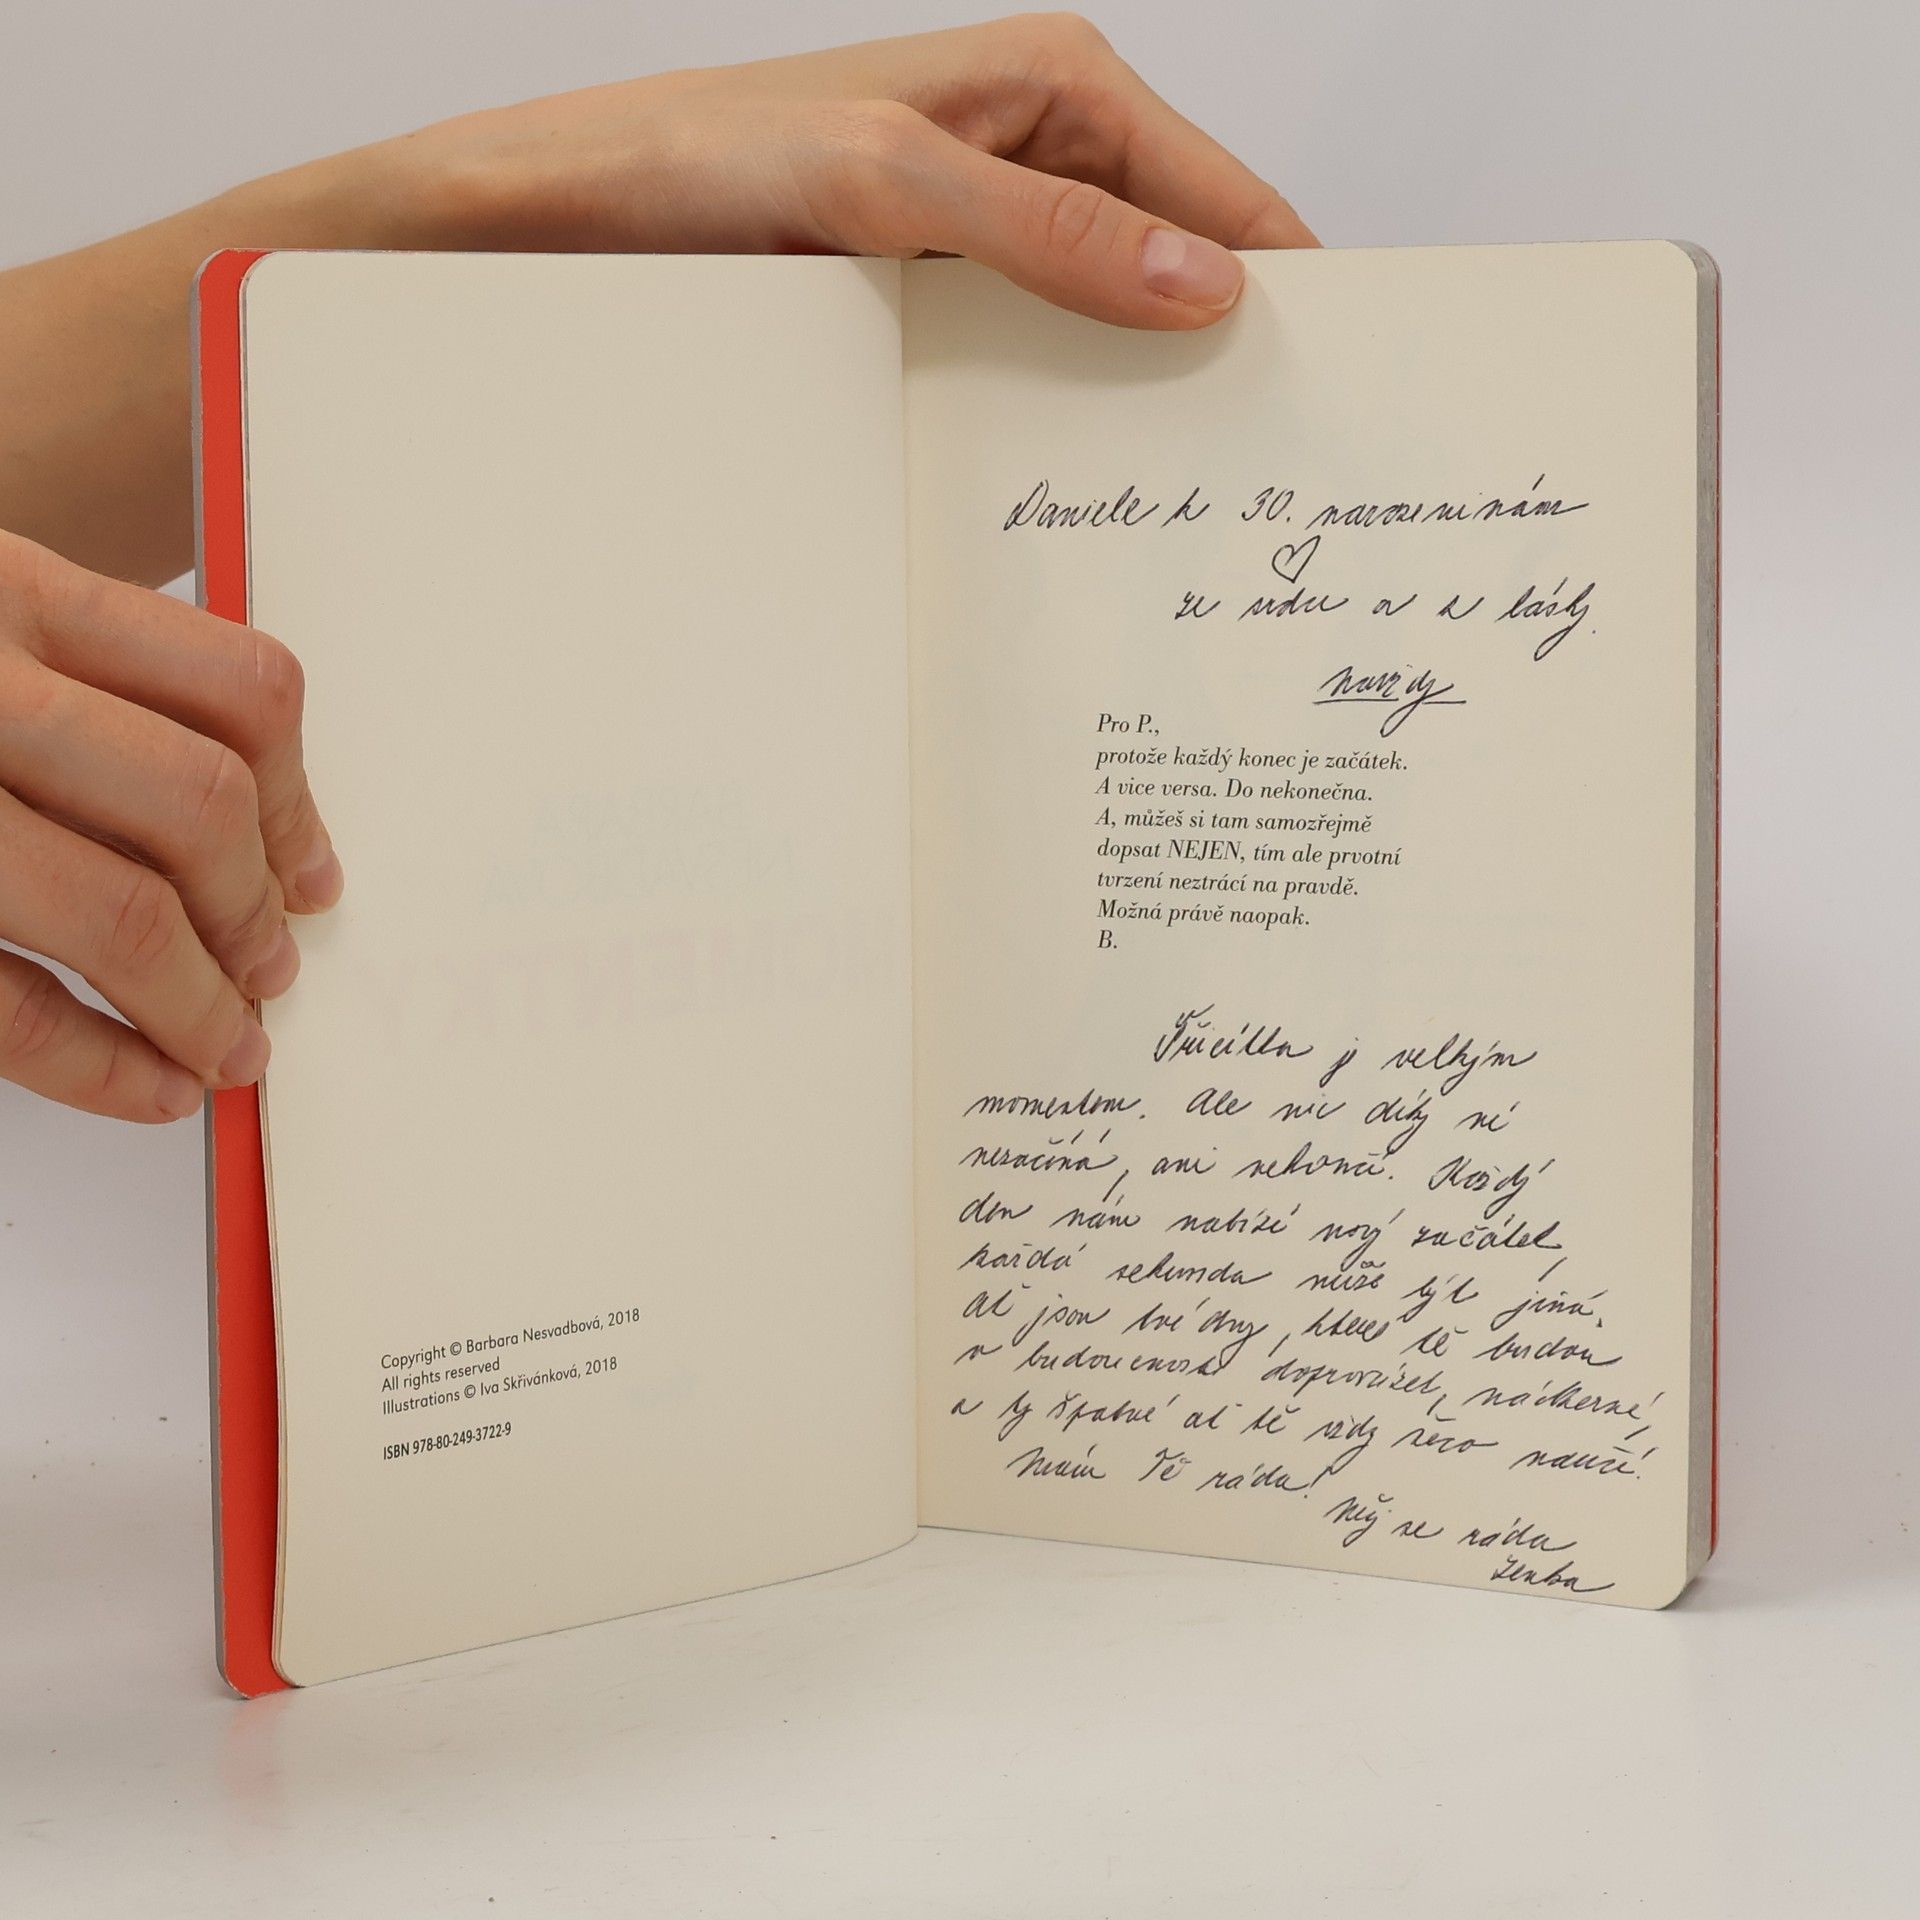 Copyright © Barbara Nesvadbová, 2018
All rights reserved
Illustrations © Iva Skřivánková, 2018
ISBN 978-80-249-3722-9
Daniele k 30. narozeninám
ze srdce a z lásky.
navždy
Pro P.,
protože každý konec je začátek.
A vice versa. Do nekonečna.
A, můžeš si tam samozřejmě
dopsat NEJEN, tím ale prvotní
tvrzení neztrácí na pravdě.
Možná právě naopak.
B.
Třicítka je velkým
momentem. Ale nic díky ní
nezačíná, ani nekončí. Každý
den nám nabízí nový začátek,
každá sekunda může být jiná.
Ať jsou tvé dny, které tě budou
v budoucnosti doprovázet, nádherné,
a ty špatné ať tě vždy něco naučí.
Mám Tě ráda!
Měj se ráda
Lenka